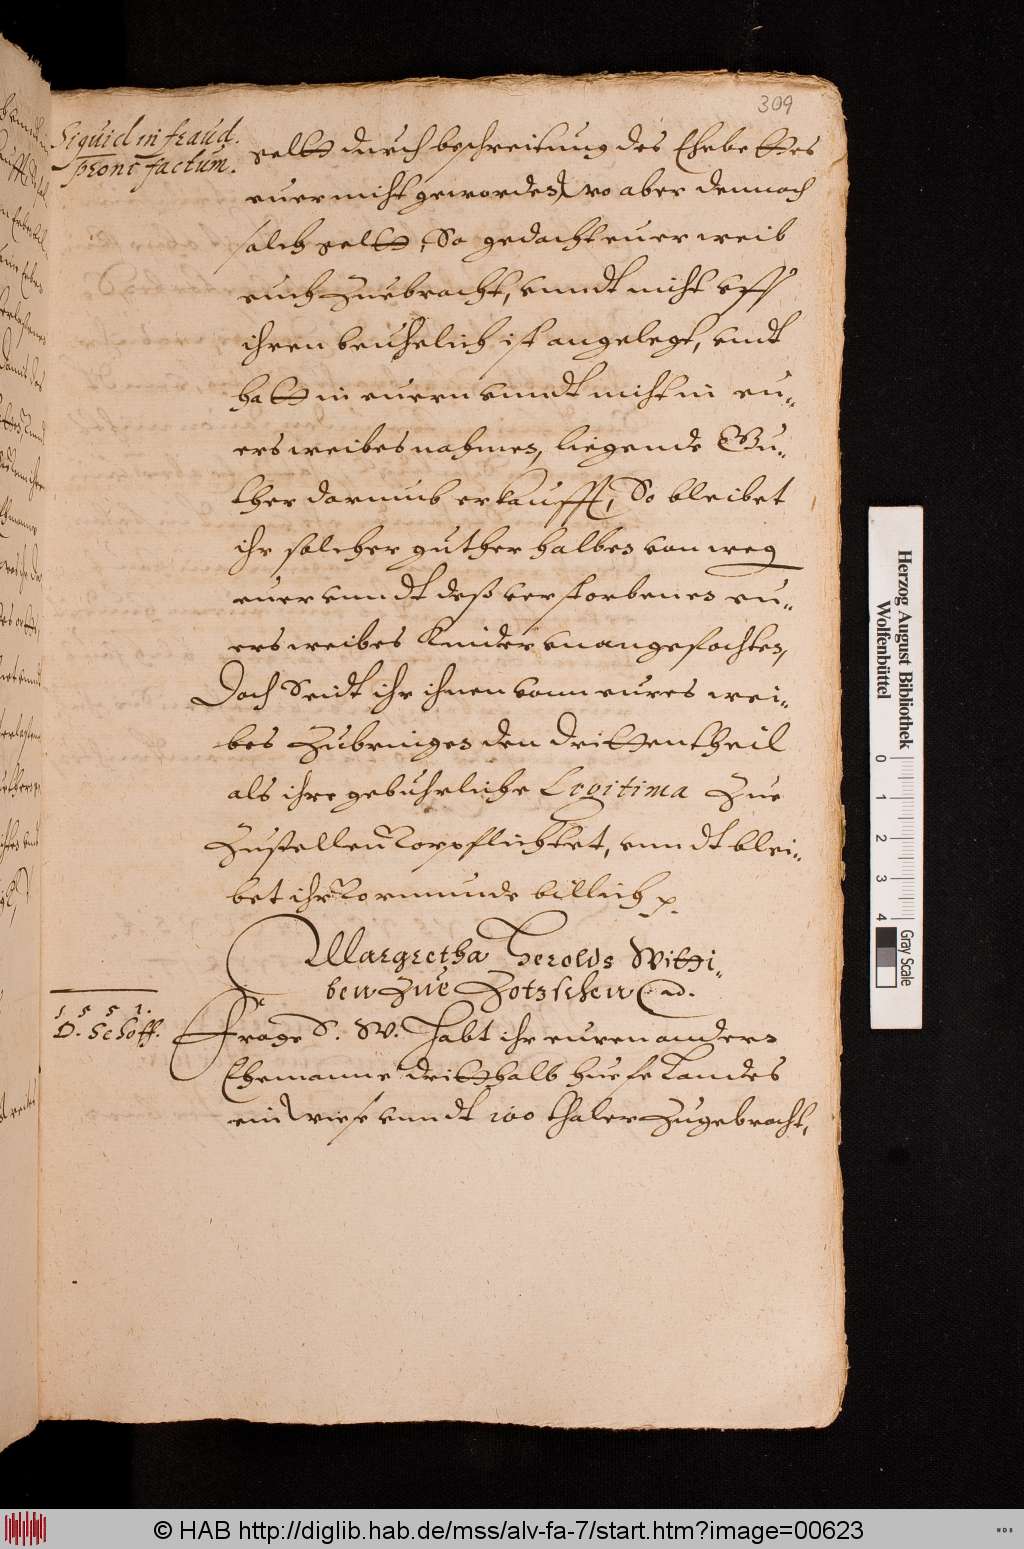 309
Siquid in fraud.
pront factum.
geltt durch beschreitung des Ehebettes
euer nicht geworden, wo aber dennoch
solch geltt, So gedacht euer weib
euch Zuebracht, vnndt nicht vff
ihren beuhelich ist angelegt, vndt
hatt in euern vnndt nicht in eu„
ers weibes nahmen, liegende Gu„
ther darumb erkaufft, So bleibet
ihr solcher guther halben von weg
euer vnndt deß verstorbenen eu„
ers weibes Kinder vnangefochten,
Doch Seidt ihr ihnen vonn eures wei„
bes Zubringen den dritten theil
als ihre gebuhrliche Legitima Zue
Zustellen Vorpflichtet, vnndt blei„
bet ihr Vormunde billich p.
Margretha Herolds Witti„
ben Zue Zotzschen
1551.
D. Schöff.
Frage D. W. Habt ihr euren andern
Ehemanne dritthalb huefe Landes
ein wiese vnndt 100 thaler Zugebracht,
Herzog August Bibliothek
Wolfenbüttel
0 1 2 3 4
Gray Scale
© HAB http://diglib.hab.de/mss/alv-fa-7/start.htm?image=00623